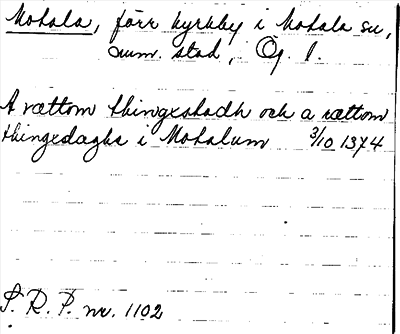 Motala, förr kyrkby i Motala sn,
num. stad, Ög. l.
A rættom thingxstadh och a rættom
thingxdaghe i Motalum 3/10 1374
S. R. P. nr. 1102